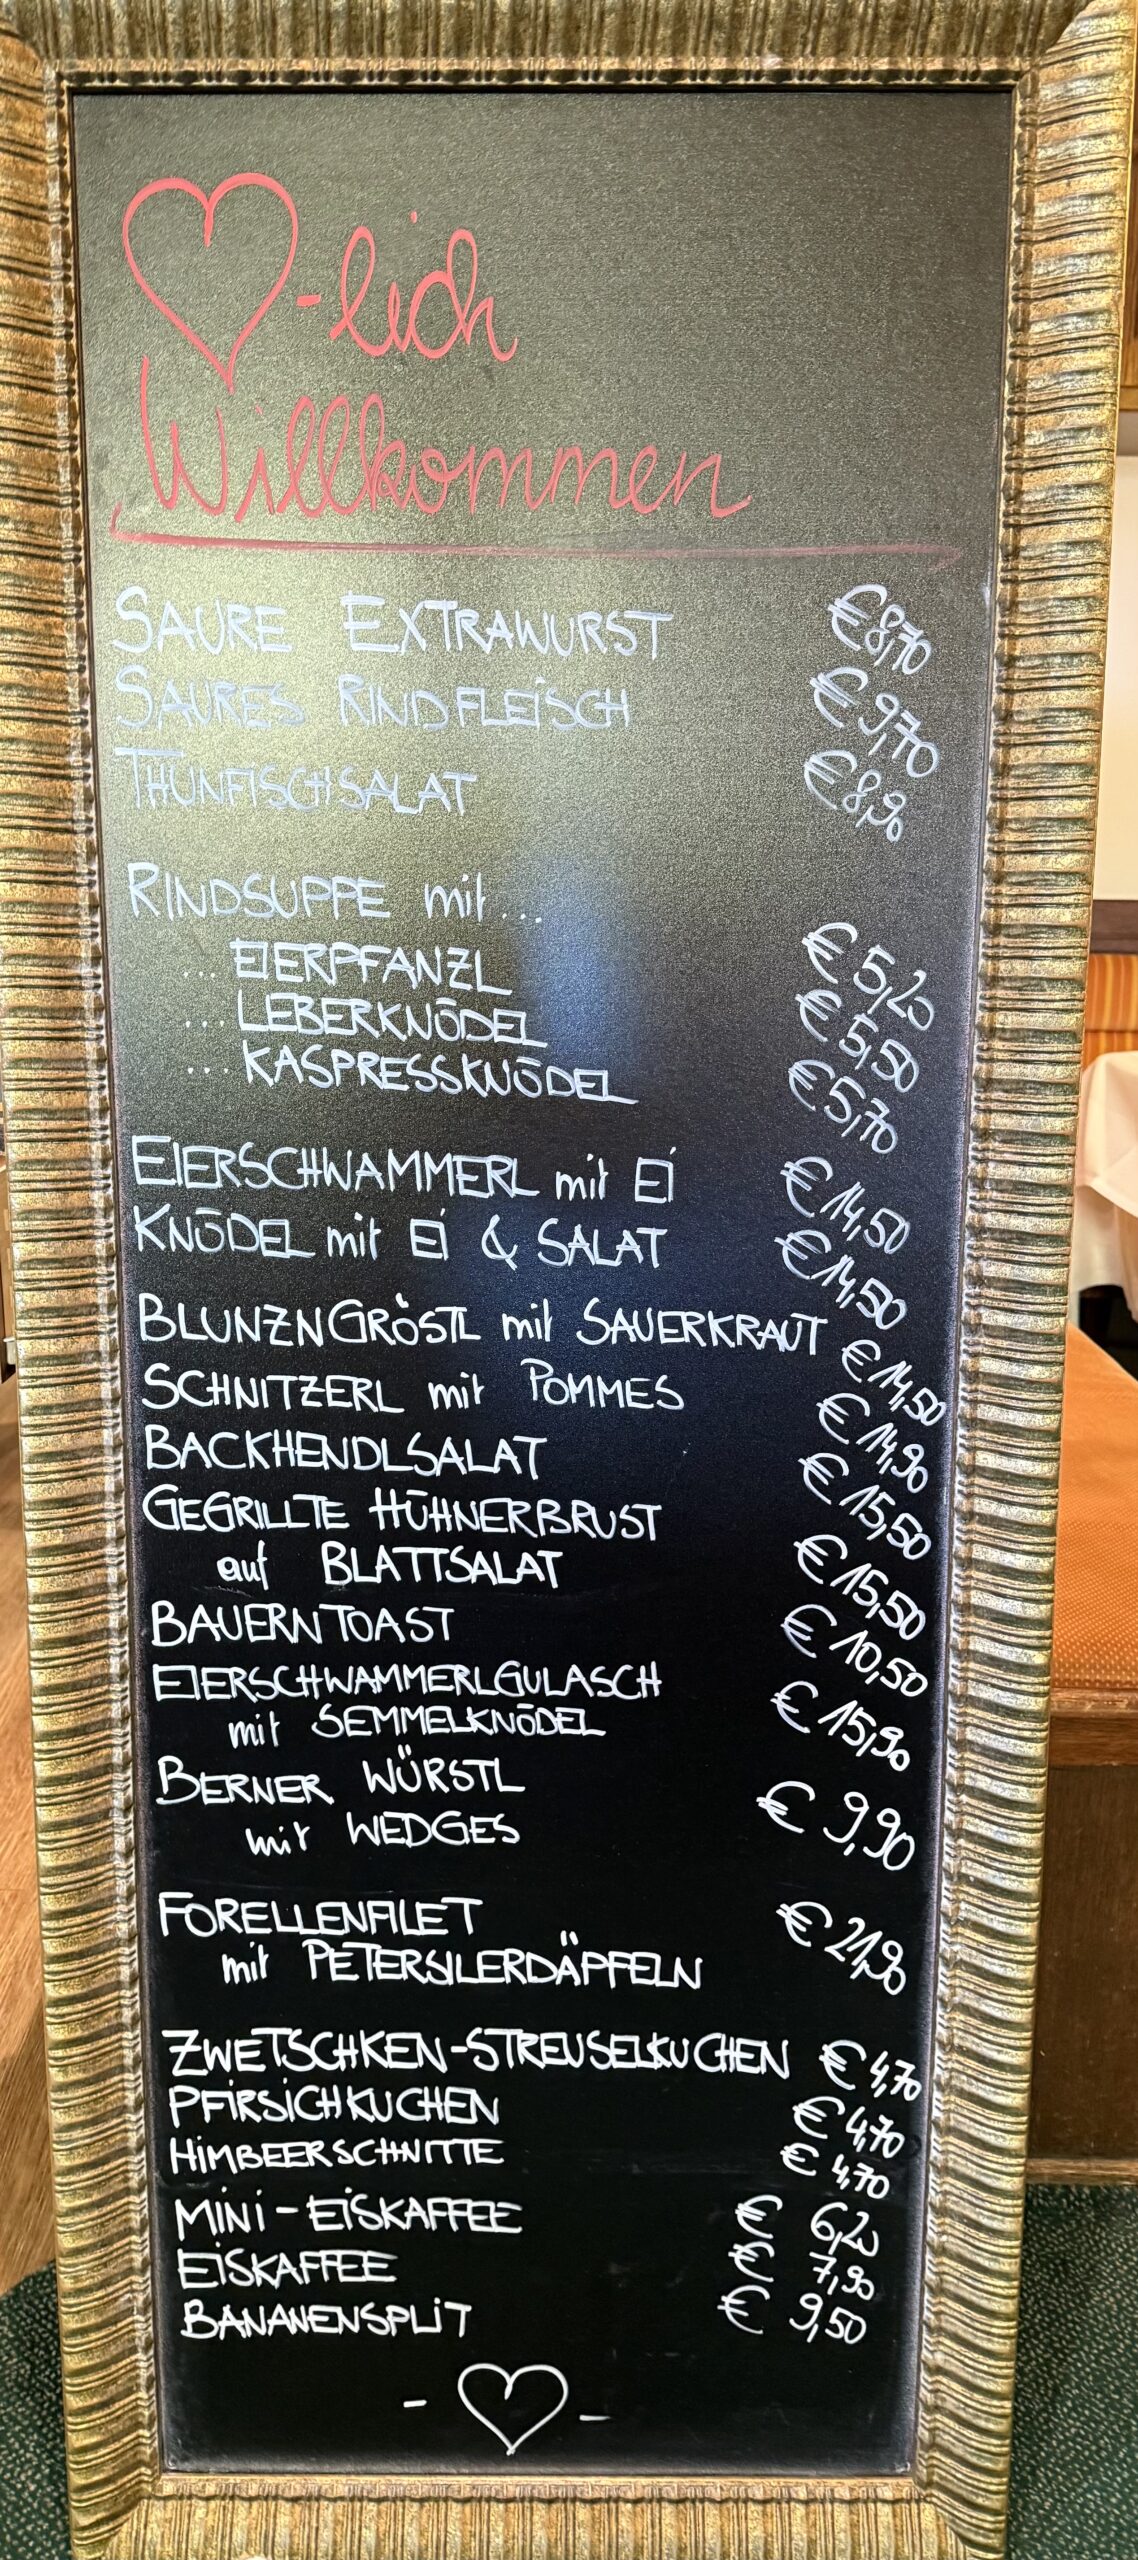 ♡-lich
Willkommen
SAURE EXTRAWURST € 8,70
SAURES RINDFLEISCH € 9,70
THUNFISCHSALAT € 8,90
RINDSUPPE mit...
... EIERPFANZL € 5,20
... LEBERKNÖDEL € 5,50
... KASPRESSKNÖDEL € 5,70
EIERSCHWAMMERL mit EI € 14,50
KNÖDEL mit EI & SALAT € 14,50
BLUNZNGRÖSTL mit SAUERKRAUT € 14,50
SCHNITZERL mit POMMES € 14,90
BACKHENDLSALAT € 15,50
GEGRILLTE HÜHNERBRUST
auf BLATTSALAT € 15,50
BAUERNTOAST € 10,50
EIERSCHWAMMERLGULASCH
mit SEMMELKNÖDEL € 15,90
BERNER WÜRSTL
mit WEDGES € 9,90
FORELLENFILET
mit PETERSILERDÄPFELN € 21,90
ZWETSCHKEN-STREUSELKUCHEN € 4,70
PFIRSICHKUCHEN € 4,70
HIMBEERSCHNITTE € 4,70
MINI-EISKAFFEE € 6,20
EISKAFFEE € 7,90
BANANENSPLIT € 9,50
- ♡ -